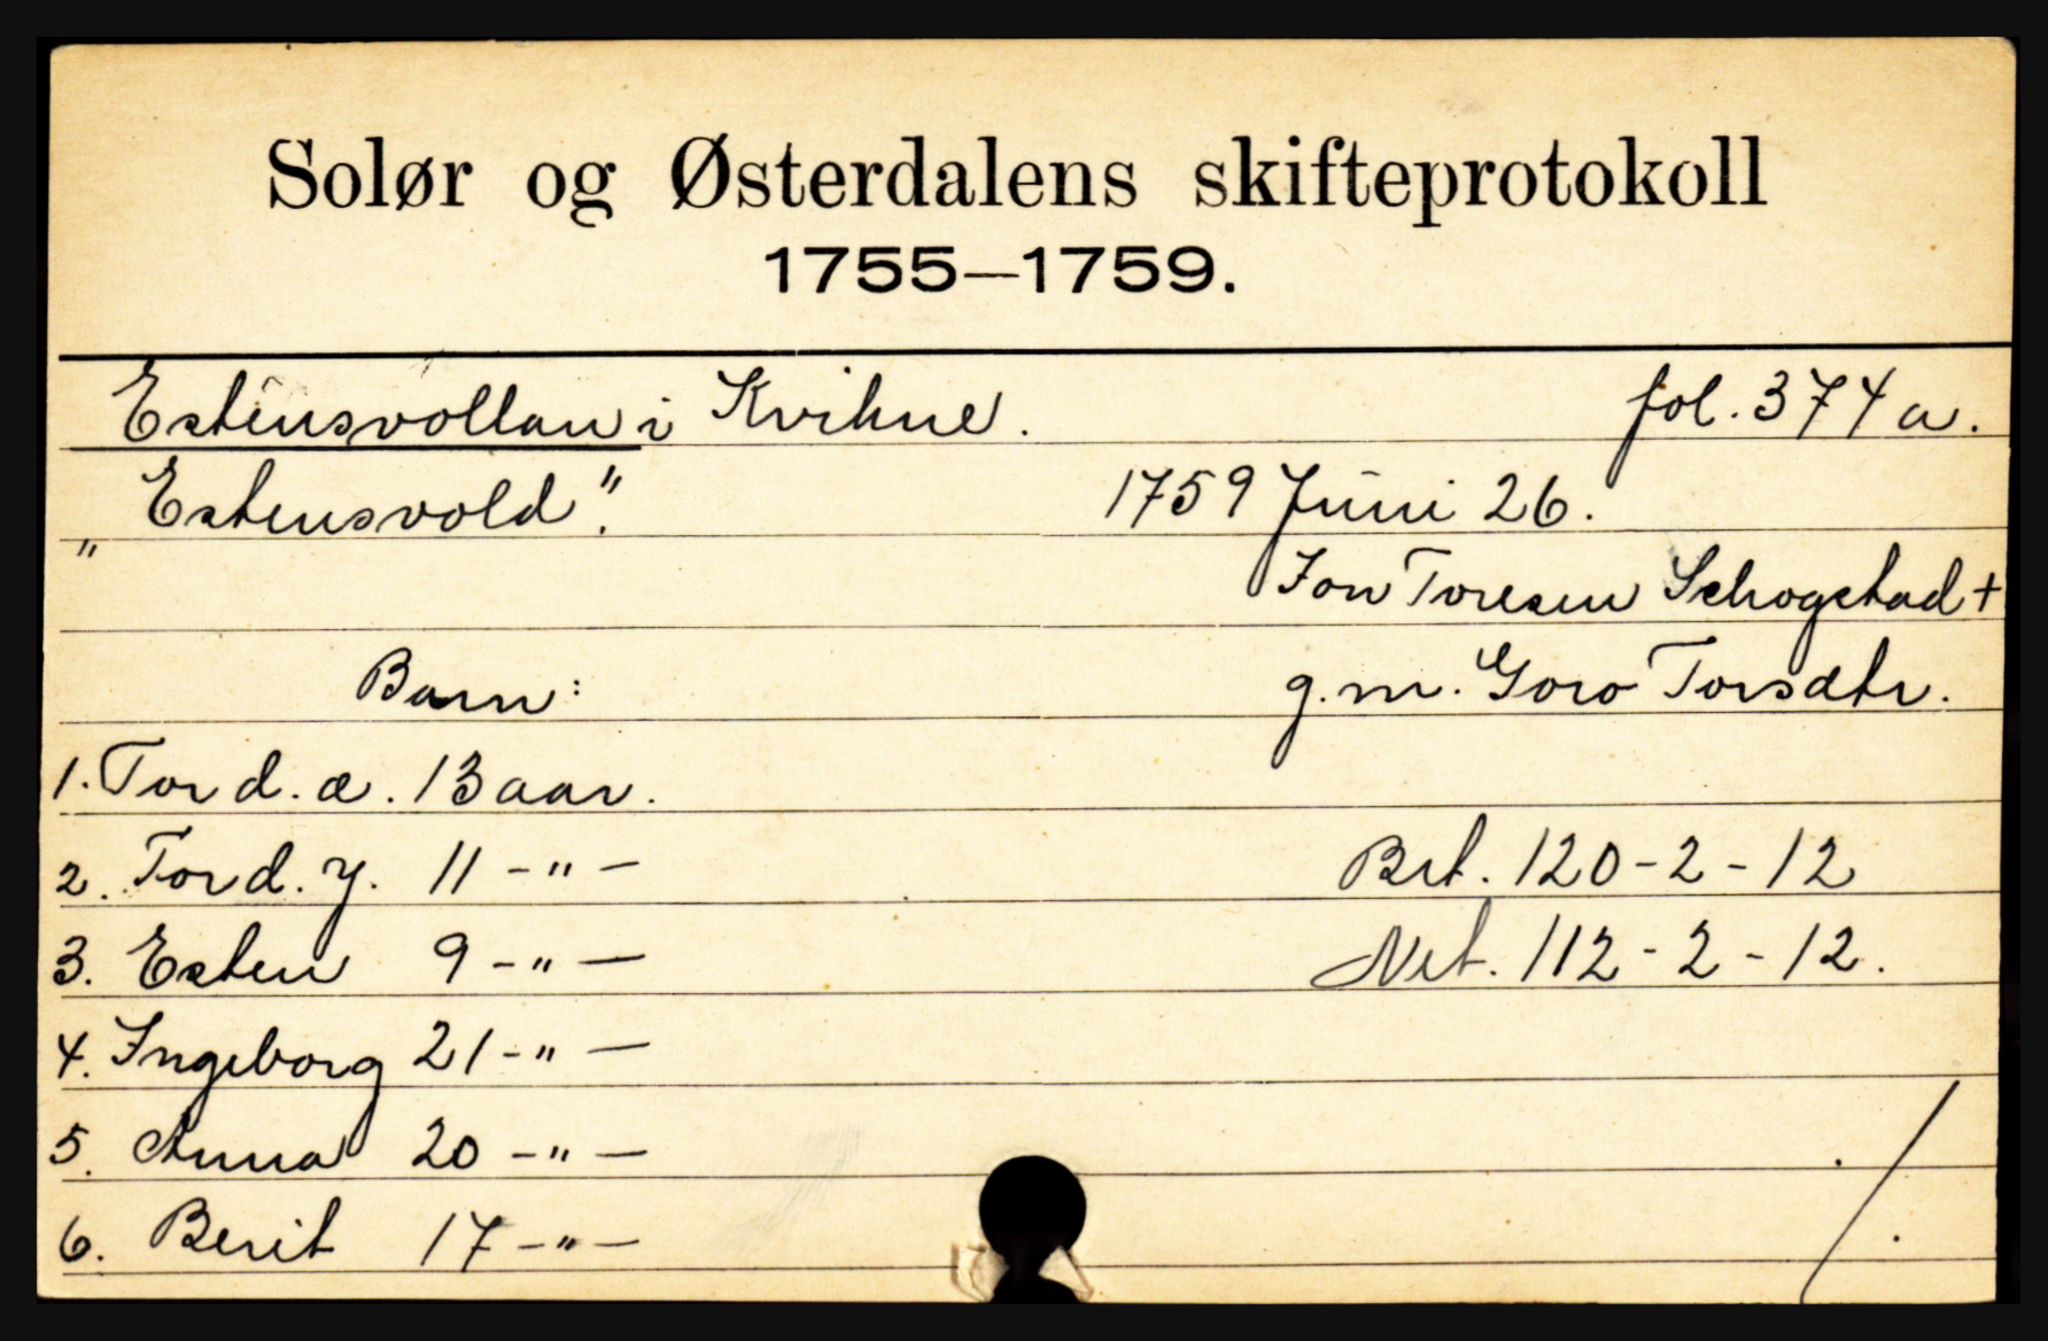 Solør og Østerdalens skifteprotokoll
1755—1759.
Estensvollan i Kvikne. fol. 374 a.
„Estensvold". 1759 Juni 26.
Jon Toresen Schogstad +
Barn: g.m. Goro Torsdtr.
1. Tor d. æ. 13 aar.
2. Tor d. y. 11 -"- Brt. 120-2-12
3. Esten 9 -"- Net. 112-2-12.
4. Ingeborg 21 -"-
5. Anna 20 -"-
6. Berit 17 -"- ./.